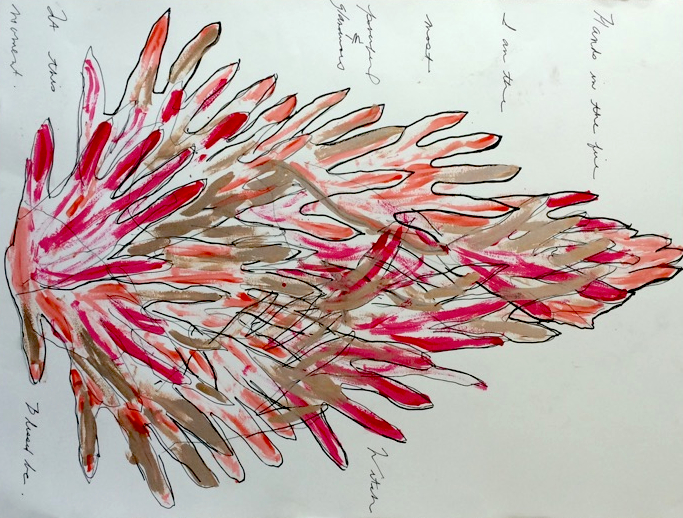 Hands in the fire
I am the
most
powerful
&
glamorous
Witch
At this
moment.
Blessed be.